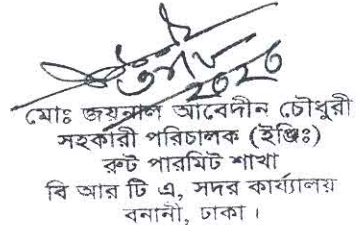 মোঃ জয়নাল আবেদীন চৌধুরী
সহকারী পরিচালক (ইঞ্জিঃ)
রুট পারমিট শাখা
বি আর টি এ, সদর কার্য্যালয়
বনানী, ঢাকা ।